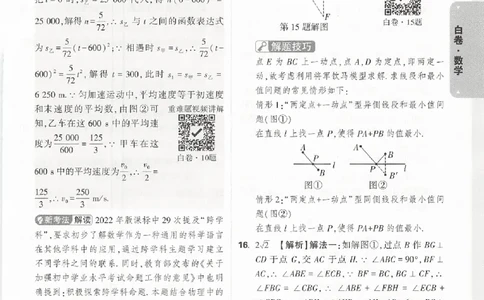 25 000,解得 a=5/72,∴ s乙与 t 之间的函数表达式
为 s乙=5/72(t-600)²;∵ 相遇时 s甲=s乙,∴ 5/72(t-
600)²=5/72t²,解得 t=300,此时 s甲=s乙=
6 250 m.∵ 匀加速运动中,平均速度等于初速度
和末速度的平均数,由图②可
知,乙车在这 600 s 中的平均速
度为25 000/600=125/3,∵ 甲车在这
600 s 中的平均速度为v₀/2,∴ v₀/2=
125/3,∴ v₀=250/3 m/s.
重难题视频讲解
白卷·10题
新考法 解读 2022 年新课标中 29 次提及“跨学
科”,要求初步了解数学作为一种通用的科学语言
在其他学科中的应用,通过跨学科主题学习建立
不同学科之间的联系.同时,教育部发布的《关于
加强初中学业水平考试命题工作的意见》中也明
确提到:积极探索跨学科命题.本题结合物理中的
F
第 15 题解图
白卷·15题
解题技巧
点 E 为 BC 上一动点,点 A,D 为定点,即两定一
动,故考虑利用将军饮马模型求解.求线段和最小
值问题的常见情形如下:
情形1:“两定点+一动点”型异侧线段和最小值问
题(图①)
在直线 l 上找一点 P,使得 PA+PB 的值最小.
A
P
l
B
图①
A
B
P
l
B'
图②
情形2:“两定点+一动点”型同侧线段和最小值问
题(图②)
在直线 l 上找一点 P,使得 PA+PB 的值最小.
16. 2√2 【解析】解法一:如解图①,过点 B 作 BG⊥
CD 于点 G,交 AC 于点 H.∵ ∠ABC=90°,BF⊥
AC,∴ ∠ABE=∠ECB,∵ BF=BC,BG⊥CF,∴
∠FBG=∠CBG,∵ ∠ABE+∠FBH=∠ECB+
白卷·数学